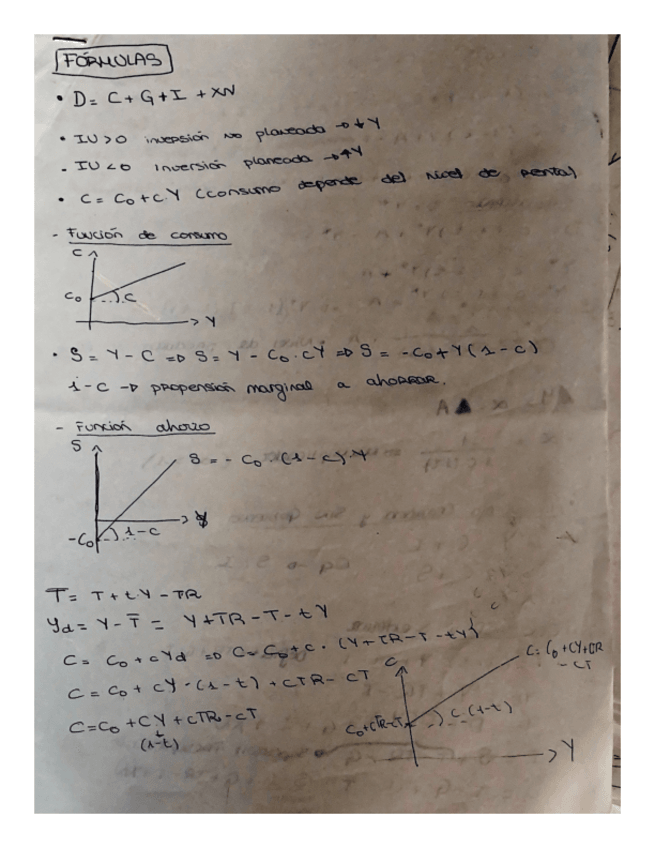 FÓRMULAS
• D = C + G + I + XN
• IU > 0 inversión no planeada → ↓Y
- IU < 0 Inversión planeada → ↑Y
• C = C₀ + c.Y (consumo depende del nivel de renta)
- Función de consumo
C
C₀ C
Y
• S = Y - C ⇒ S = Y - C₀ . cY ⇒ S = -C₀ + Y (1 - c)
1 - c → propensión marginal a ahorrar.
- Función ahorro
S
S = - C₀ . (1 - c) . Y
-C₀ 1 - c
T = T + tY - TR
Yd = Y - T̄ = Y + TR - T - tY
C = C₀ + cYd ⇒ C = C₀ + c . (Y + TR - T - tY)
C = C₀ + cY . (1 - t) + cTR - cT
C = C₀ + CY + cTR - cT
(1 - t)
C
C = C₀ + CY + CTR
- CT
C₀ + CTR - CT C (1 - t)
Y